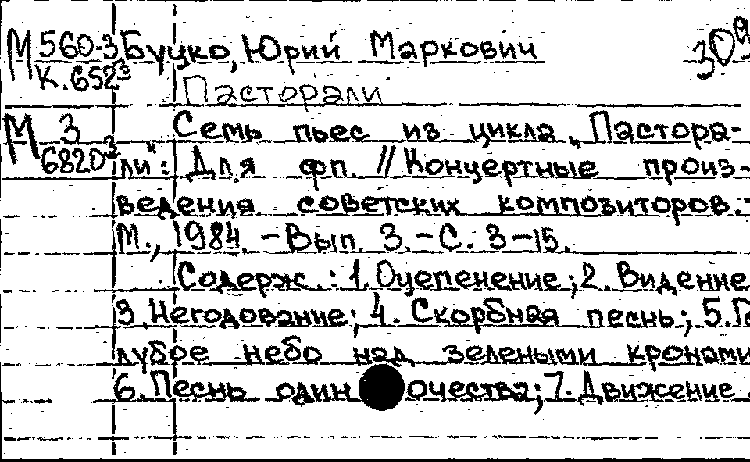 М 560-3 Буцко, Юрий Маркович 309
К.652³
Пасторали
М 3 Семь пьес из цикла „Пастора-
6820³ ли": Для фп. // Концертные произ-
ведения советских композиторов.-
М., 1984. - Вып. 3. - С. 3-15.
Содерж.: 1. Оцепенение; 2. Видение
3. Негодование; 4. Скорбная песнь; 5. Го
лубое небо над зелеными кронами
6. Песнь один очества; 7. Движение.